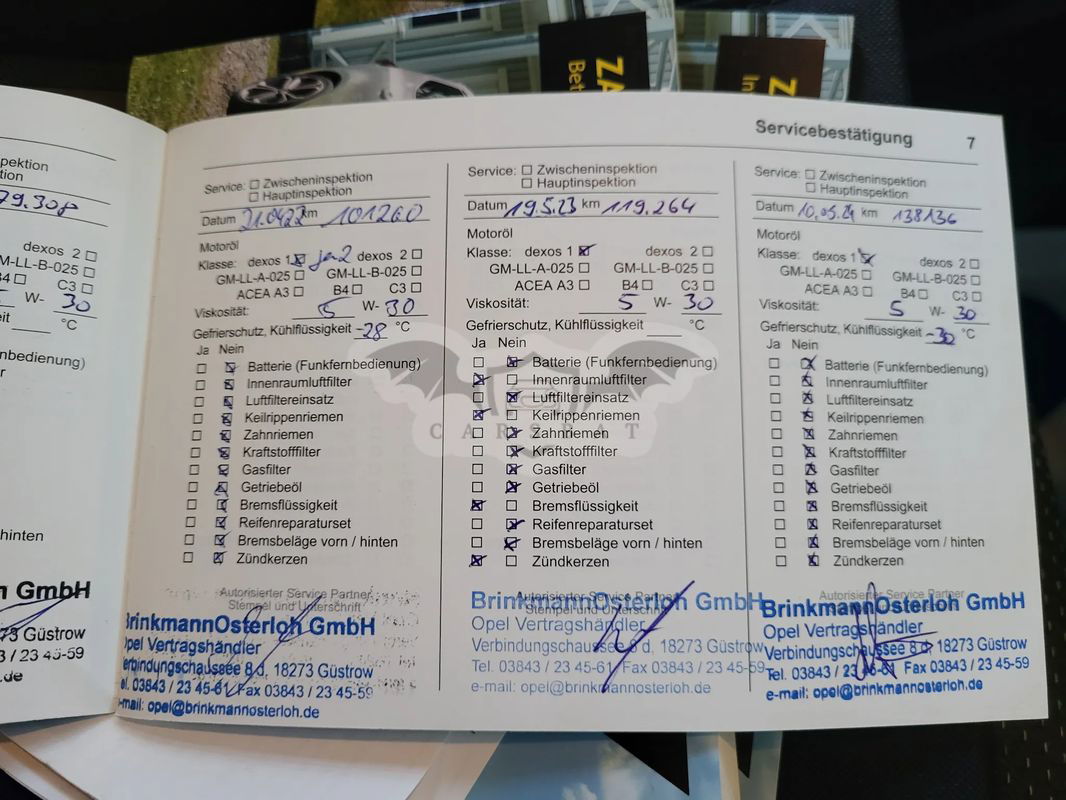 ZA
Bet
ZA
In
Servicebestätigung 7
pektion
tion
79.308
dexos 2 ☐
GM-LL-B-025 ☐
B4 ☐ C3 ☐
W- 30
°C
nbedienung)
hinten
h GmbH
73 Güstrow
3 / 23 45-59
.de
Service: ☐ Zwischeninspektion
☐ Hauptinspektion
Datum 21.0422 km 101260
Motoröl
Klasse: dexos 1 ☒ dexos 2 ☐
GM-LL-A-025 ☐ GM-LL-B-025 ☐
ACEA A3 ☐ B4 ☐ C3 ☐
Viskosität: 5 W- 30
Gefrierschutz, Kühlflüssigkeit -28 °C
Ja Nein
☐ ☒ Batterie (Funkfernbedienung)
☐ ☒ Innenraumluftfilter
☐ ☒ Luftfiltereinsatz
☐ ☒ Keilrippenriemen
☐ ☒ Zahnriemen
☐ ☒ Kraftstofffilter
☐ ☒ Gasfilter
☐ ☒ Getriebeöl
☐ ☒ Bremsflüssigkeit
☐ ☒ Reifenreparaturset
☐ ☒ Bremsbeläge vorn / hinten
☐ ☒ Zündkerzen
Autorisierter Service Partner
Stempel und Unterschrift
BrinkmannOsterloh GmbH
Opel Vertragshändler
Verbindungschaussee 8 d, 18273 Güstrow
el. 03843 / 23 45-61 Fax 03843 / 23 45-59
e-mail: opel@brinkmannosterloh.de
Service: ☐ Zwischeninspektion
☐ Hauptinspektion
Datum 19.5.23 km 119.264
Motoröl
Klasse: dexos 1 ☒ dexos 2 ☐
GM-LL-A-025 ☐ GM-LL-B-025 ☐
ACEA A3 ☐ B4 ☐ C3 ☐
Viskosität: 5 W- 30
Gefrierschutz, Kühlflüssigkeit ____ °C
Ja Nein
☐ ☒ Batterie (Funkfernbedienung)
☒ ☐ Innenraumluftfilter
☐ ☒ Luftfiltereinsatz
☒ ☐ Keilrippenriemen
☐ ☒ Zahnriemen
☐ ☒ Kraftstofffilter
☐ ☒ Gasfilter
☐ ☒ Getriebeöl
☒ ☐ Bremsflüssigkeit
☐ ☒ Reifenreparaturset
☐ ☒ Bremsbeläge vorn / hinten
☒ ☐ Zündkerzen
Autorisierter Service Partner
Stempel und Unterschrift
BrinkmannOsterloh GmbH
Opel Vertragshändler
Verbindungschaussee 8 d, 18273 Güstrow
Tel. 03843 / 23 45-61 Fax 03843 / 23 45-59
e-mail: opel@brinkmannosterloh.de
Service: ☐ Zwischeninspektion
☐ Hauptinspektion
Datum 10.05.24 km 138136
Motoröl
Klasse: dexos 1 ☒ dexos 2 ☐
GM-LL-A-025 ☐ GM-LL-B-025 ☐
ACEA A3 ☐ B4 ☐ C3 ☐
Viskosität: 5 W- 30
Gefrierschutz, Kühlflüssigkeit -30 °C
Ja Nein
☐ ☒ Batterie (Funkfernbedienung)
☐ ☒ Innenraumluftfilter
☐ ☒ Luftfiltereinsatz
☐ ☒ Keilrippenriemen
☐ ☒ Zahnriemen
☐ ☒ Kraftstofffilter
☐ ☒ Gasfilter
☐ ☒ Getriebeöl
☐ ☒ Bremsflüssigkeit
☐ ☒ Reifenreparaturset
☐ ☒ Bremsbeläge vorn / hinten
☐ ☒ Zündkerzen
Autorisierter Service Partner
BrinkmannOsterloh GmbH
Opel Vertragshändler
Verbindungschaussee 8 d, 18273 Güstrow
Tel. 03843 / 23 45-61 Fax 03843 / 23 45-59
e-mail: opel@brinkmannosterloh.de
CARSBAT